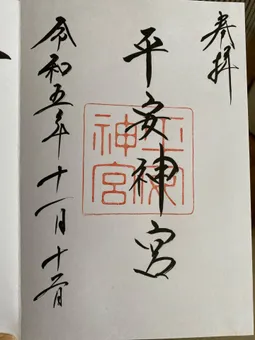 奉拝
平安神宮
平安
神宮
令和五年十一月十日